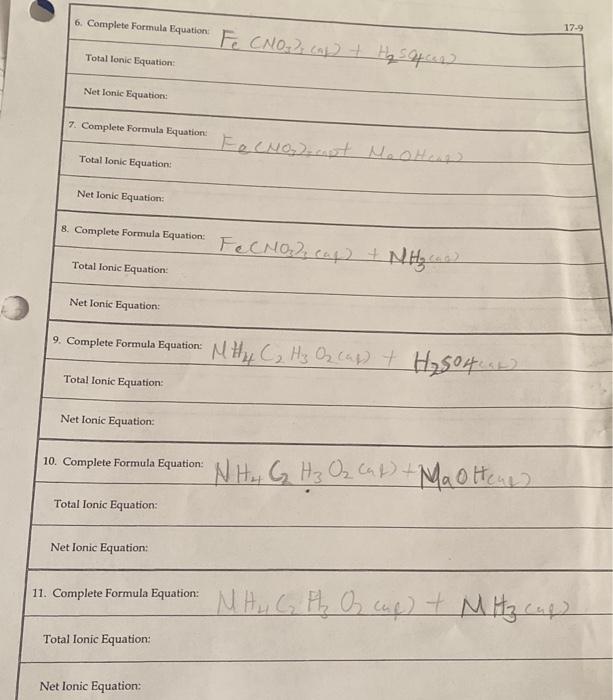 17-9
6. Complete Formula Equation: Fe(NO3)3 (aq) + H2SO4(aq)
Total Ionic Equation:
Net Ionic Equation:
7. Complete Formula Equation: Fe(NO3)3(aq)+ NaOH(aq)
Total Ionic Equation:
Net Ionic Equation:
8. Complete Formula Equation: Fe(NO3)3 (aq) + NH3(aq)
Total Ionic Equation:
Net Ionic Equation:
9. Complete Formula Equation: NH4 C2 H3 O2 (aq) + H2SO4(aq)
Total Ionic Equation:
Net Ionic Equation:
10. Complete Formula Equation: NH4 C2 H3 O2 (aq) + NaOH(aq)
Total Ionic Equation:
Net Ionic Equation:
11. Complete Formula Equation: NH4 C2 H3 O2 (aq) + NH3 (aq)
Total Ionic Equation:
Net Ionic Equation: